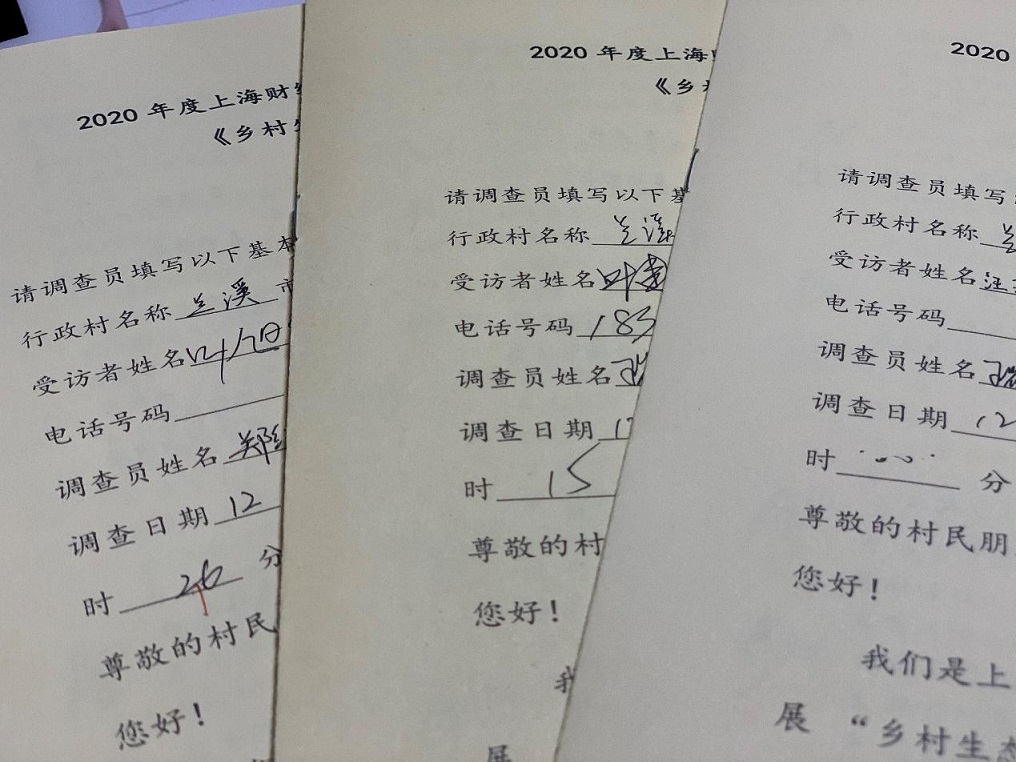 2020 年度上海财
《乡村
请调查员填写以下基本
行政村名称 兰溪 市
受访者姓名 叶
电话号码
调查员姓名 郑
调查日期 12
时 26 分
尊敬的村民
您好！
2020 年度上海
《乡
请调查员填写以下基
行政村名称 兰溪
受访者姓名 叶
电话号码 183
调查员姓名
调查日期 1
时 15
尊敬的村
您好！
我
展
2020
请调查员填写
行政村名称
受访者姓名 汪
电话号码
调查员姓名
调查日期 12
时 分
尊敬的村民朋
您好！
我们是上
展 “乡村生态